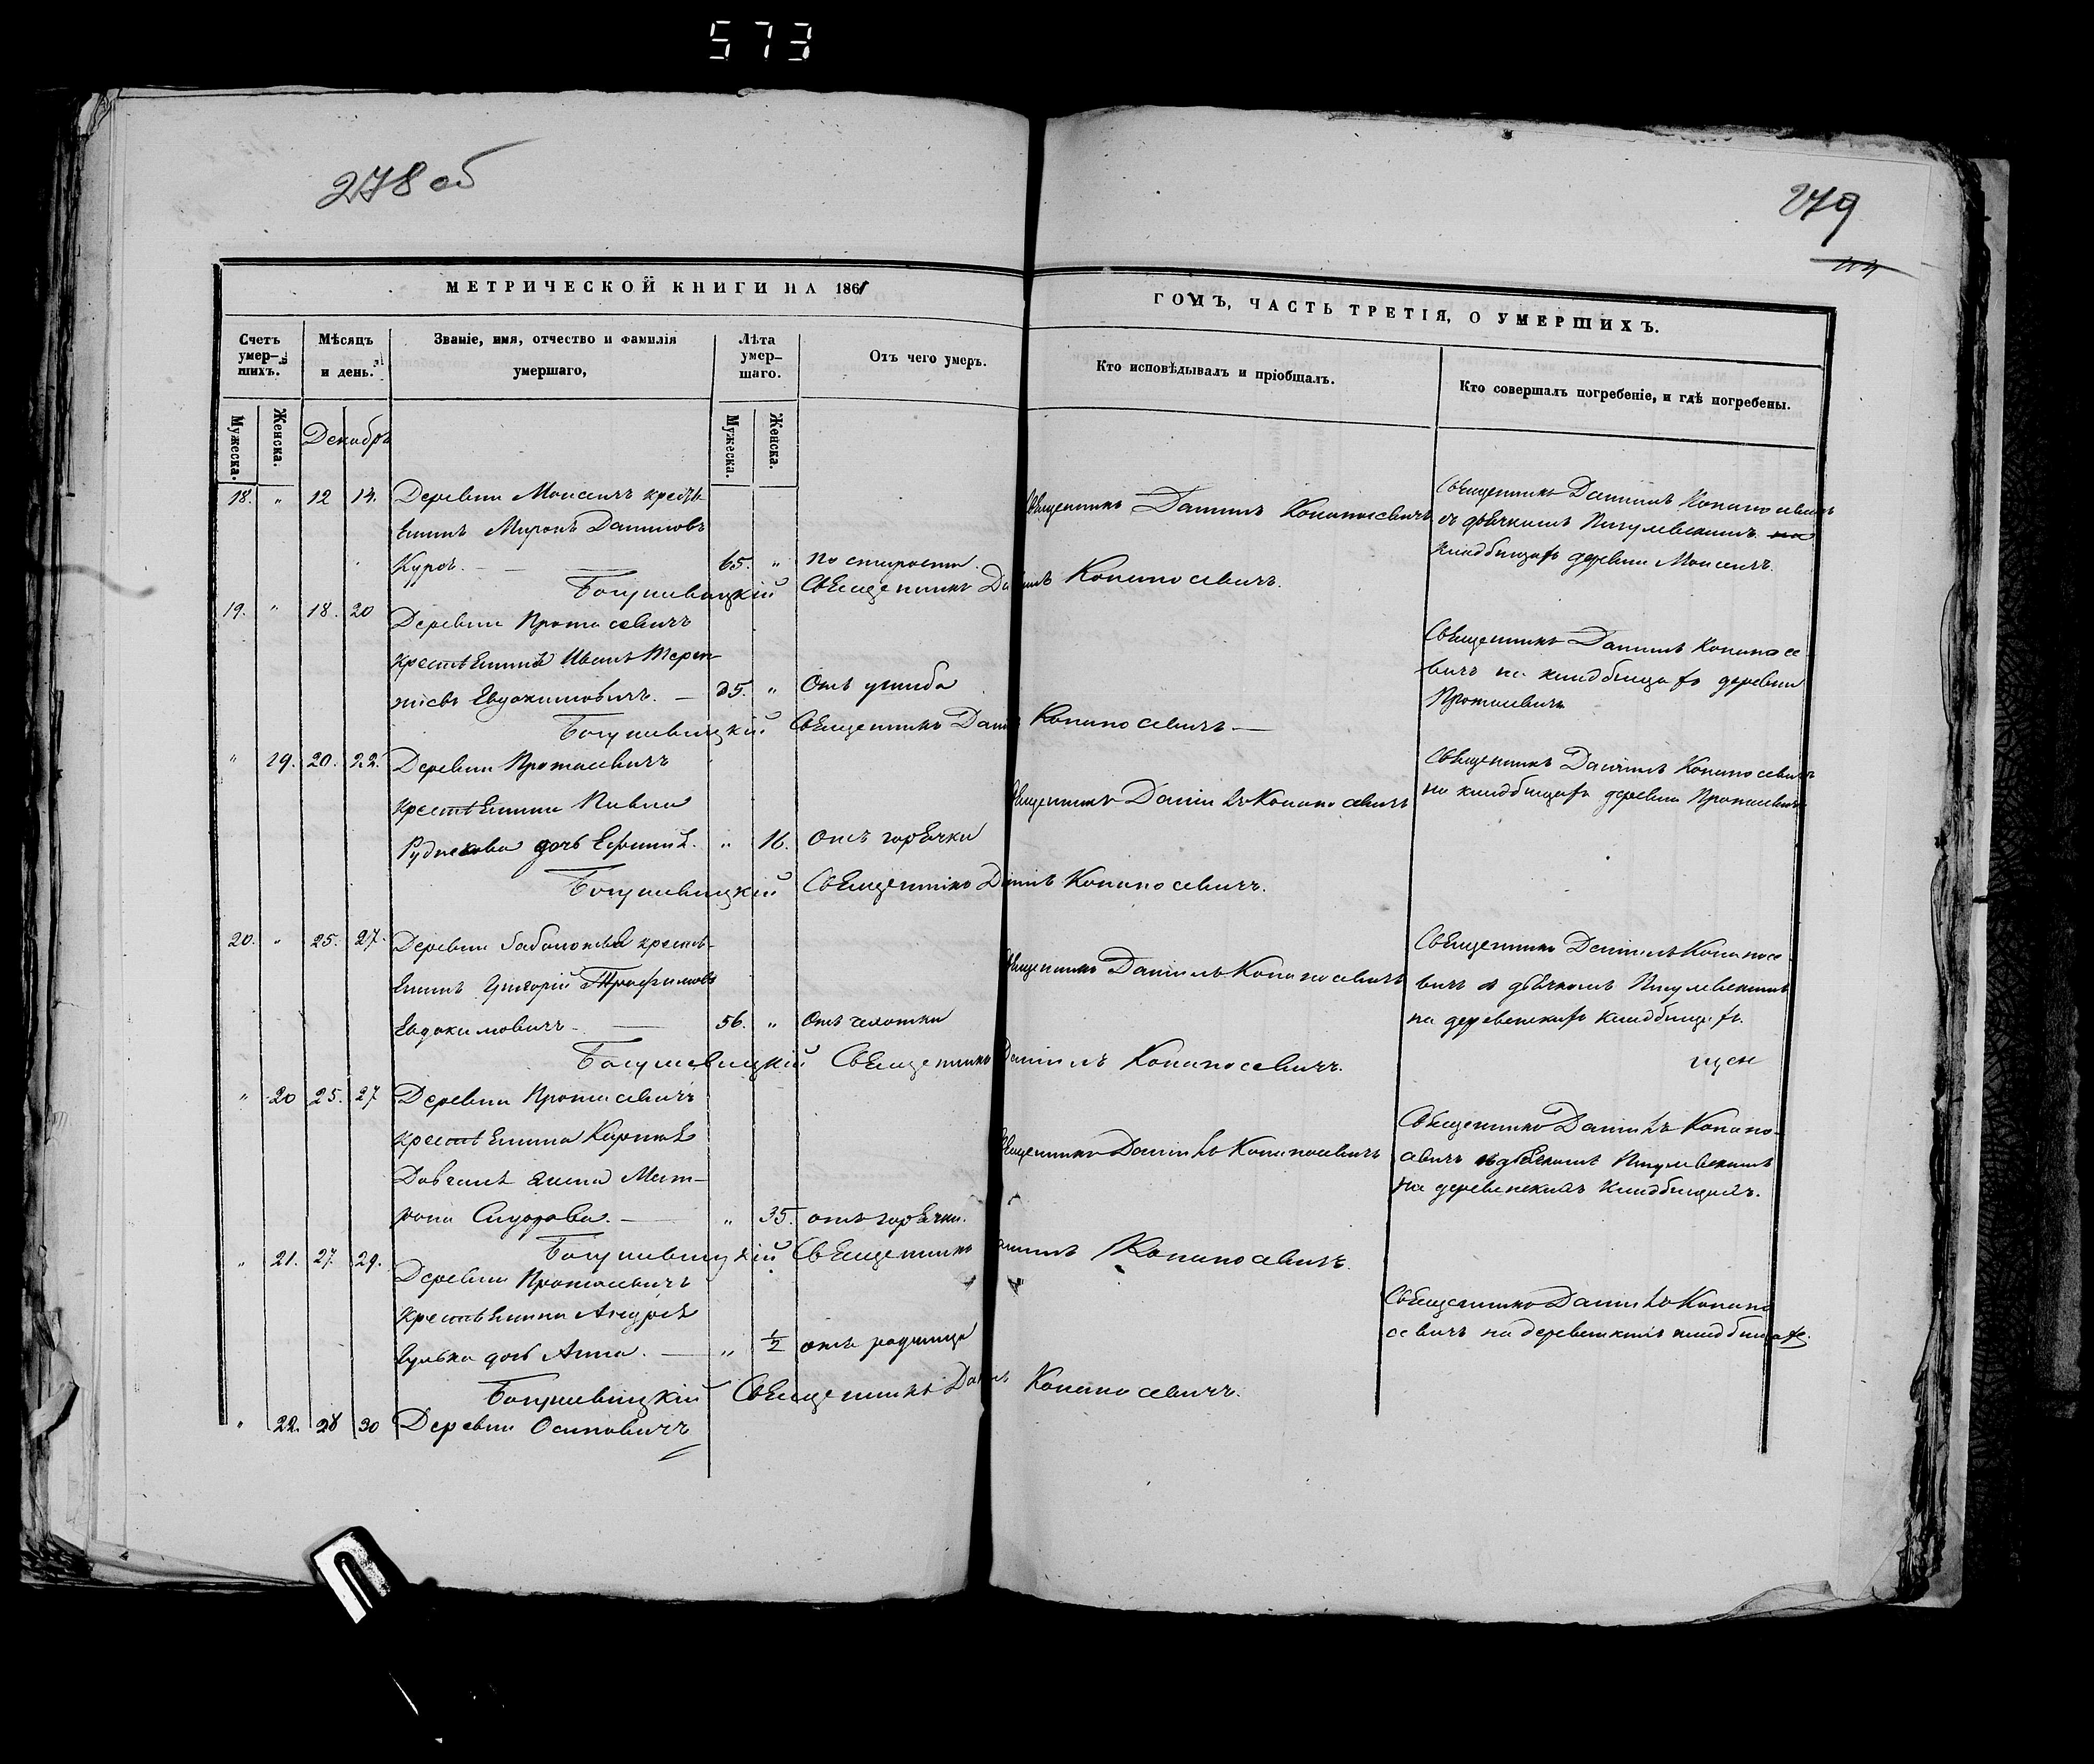 573
278 об
279
МЕТРИЧЕСКОЙ КНИГИ НА 1861
ГОДЪ, ЧАСТЬ ТРЕТІЯ, О УМЕРШИХЪ.
Счетъ умер- шихъ.
Мѣсяцъ и день.
Званіе, имя, отчество и фамилія умершаго,
Лѣта умер- шаго.
Отъ чего умеръ.
Кто исповѣдывалъ и пріобщалъ.
Кто совершалъ погребеніе, и гдѣ погребены.
Мужеска. Женска.
Декабрь
Мужеска. Женска.
18. " 12 14. Деревни Моисеичъ кресть-
янинъ Миронъ Даниловъ
Куроч. 65. " по старости.
Священникъ Даніилъ Конаносевичъ
Священникъ Даніилъ Конаносевичъ
съ дьячкомъ Пигулевскимъ на
кладбищахъ деревни Моисеичъ.
Богушевицкій Священникъ Даніилъ Конаносевичъ.
19. " 18. 20 Деревни Протасевичъ
крестьянинъ Иванъ Терен-
тіевъ Евдокимовичъ. 35. " Отъ ушиба
Священникъ Даніилъ Конаносе-
вичъ на кладбищахъ деревни
Протасевичъ
Богушевицкій Священникъ Даніилъ Конаносевичъ
" 19. 20. 22. Деревни Протасевичъ
крестьянина Павла
дочь Ефимія. " 16. Отъ горячки
Священникъ Даніилъ Конаносевичъ
Священникъ Даніилъ Конаносевичъ
на кладбищахъ деревни Протасевичъ
Богушевицкій Священникъ Даніилъ Конаносевичъ.
20. " 25. 27. Деревни кресть-
янинъ Григорій Трофимовъ
Евдокимовичъ 56. " Отъ чахотки
Священникъ Даніилъ Конаносевичъ
Священникъ Даніилъ Конаносе
вичъ съ дьячкомъ Пигулевскимъ
на деревенскихъ кладбищахъ.
Богушевицкій Священникъ Даніилъ Конаносевичъ.
щах
" 20 25. 27 Деревни Протасевичъ
крестьянина Карпа
жена Мат-
рона Сидорова. " 35. отъ горячки.
Священникъ Даніилъ Конаносевичъ
Священникъ Даніилъ Конано-
севичъ съ дьячкомъ Пигулевскимъ
на деревенскихъ кладбищахъ.
Богушевицкій Священникъ Даніилъ Конаносевичъ.
" 21. 27. 29. Деревни Протасевичъ
крестьянина Андрея
дочь Анна. " ½ отъ родимца
Священникъ Даніилъ Конано
севичъ на деревенскихъ кладбищахъ.
Богушевицкій Священникъ Даніилъ Конаносевичъ.
" 22. 28 30 Деревни Осиповичъ